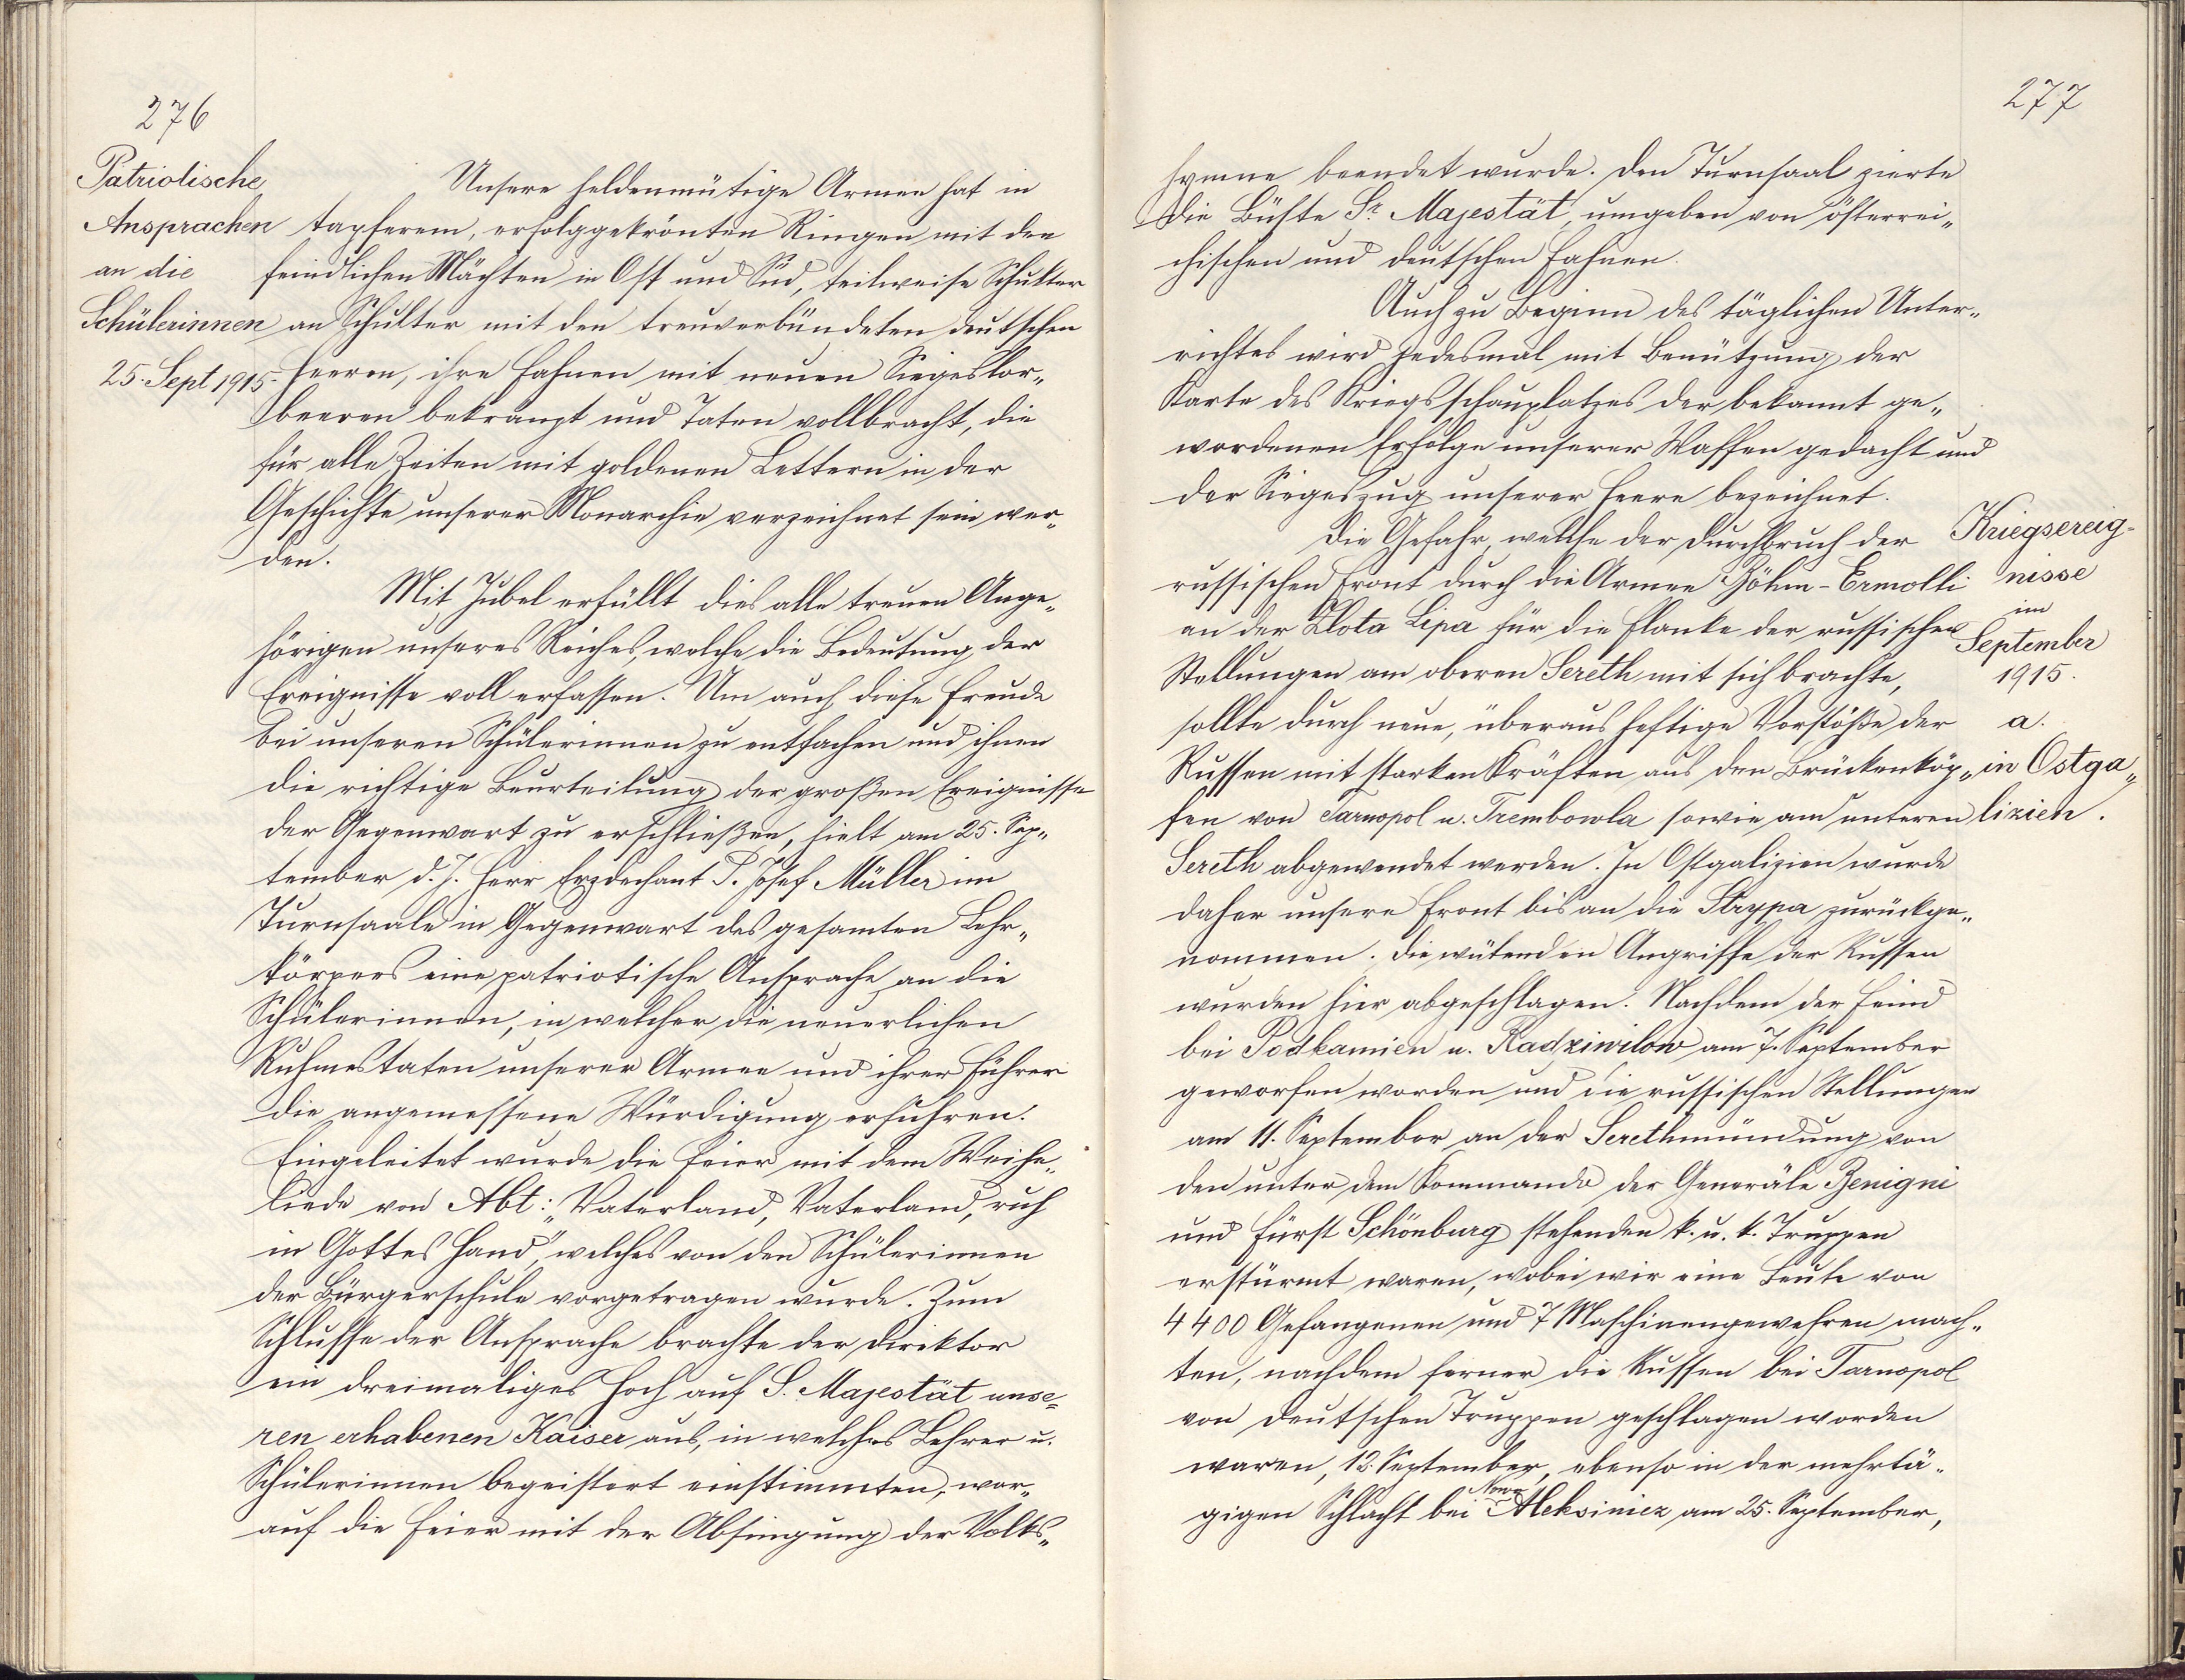 276
Patriotische
Ansprachen
an die
Schülerinnen
25. Sept 1915.
Unsere heldenmütige Armee hat in
tapferem, erfolggekrönten Ringen mit den
feindlichen Mächten in Ost und Süd, teilweise Schulter
an Schulter mit den treuverbündeten deutschen
Heeren, ihre Fahnen mit neuen Siegeslor„
beeren bekränzt und Taten vollbracht, die
für alle Zeiten mit goldenen Lettern in der
Geschichte unserer Monarchie verzeichnet sein wer„
den.
Mit Jubel erfüllt dies alle treuen Ange„
hörigen unseres Reiches, welche die Bedeutung der
Ereignisse voll erfassen. Um auch diese Freude
bei unseren Schülerinnen zu entfachen und ihnen
die richtige Beurteilung der großen Ereignisse
der Gegenwart zu erschließen, hielt am 25. Sep„
tember d. J. Herr Erzdechant P. Josef Müller im
Turnsaale in Gegenwart des gesamten Lehr„
körpers eine patriotische Ansprache an die
Schülerinnen, in welcher die neuerlichen
Ruhmestaten unserer Armee und ihrer Führer
die angemessene Würdigung erfuhren.
Eingeleitet wurde die Feier mit dem Weihe„
liede von Abt: „Vaterland, Vaterland, ruh
in Gottes Hand", welches von den Schülerinnen
der Bürgerschule vorgetragen wurde. Zum
Schlusse der Ansprache brachte der Direktor
ein dreimaliges Hoch auf S. Majestät unse„
ren erhabenen Kaiser aus, in welches Lehrer u.
Schülerinnen begeistert einstimmten, wor„
auf die Feier mit der Absingung der Volks„
277
hymne beendet wurde. Den Turnsaal zierte
die Büste Sr. Majestät, umgeben von österrei„
chischen und deutschen Fahnen.
Auch zu Beginn des täglichen Unter„
richtes wird jedesmal mit Benützung der
Karte des Kriegsschauplatzes der bekannt ge„
wordenen Erfolge unserer Waffen gedacht und
der Siegeszug unserer Heere bezeichnet.
Die Gefahr, welche der Durchbruch der
russischen Front durch die Armee Böhm-Ermolli
an der Zlota Lipa für die Flanke der russischen
Stellungen am oberen Sereth mit sich brachte,
sollte durch neue, überaus heftige Vorstöße der
Russen mit starken Kräften aus den Brückenköp„
fen von Tarnopol u. Trembowla sowie am unteren
Sereth abgewendet werden. In Ostgalizien wurde
daher unsere Front bis an die Strypa zurückge„
nommen. Die wütenden Angriffe der Russen
wurden hier abgeschlagen. Nachdem der Feind
bei Podkamien u. Radziwilow am 7. September
geworfen worden und die russischen Stellungen
am 11. September an der Serethmündung von
den unter dem Kommando der Generäle Benigni
und Fürst Schönburg stehenden k. u. k. Truppen
erstürmt waren, wobei wir eine Beute von
4400 Gefangenen und 7 Maschinengewehren mach„
ten, nachdem ferner die Russen bei Tarnopol
von deutschen Truppen geschlagen worden
waren, 12. September, ebenso in der mehrtä„
gigen Schlacht bei Nowo Aleksiniez am 25. September,
Kriegsereig-
nisse
im
September
1915.
a.
in Ostga„
lizien.